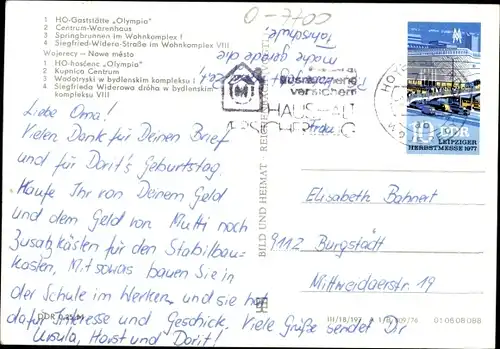 1 HO-Gaststätte „Olympia"
2 Centrum-Warenhaus
3 Springbrunnen im Wohnkomplex I
4 Siegfried-Widera-Straße im Wohnkomplex VIII
Wojerecy — Nowe město
1 HO-hosćenc „Olympia"
2 Kupnica Centrum
3 Wodotryski w bydlenskim kompleksu I
4 Siegfrieda Widerowa dróha w bydlenskim kompleksu VIII
Liebe Oma!
Vielen Dank für Deinen Brief
und für Dorit's Geburtstag.
Kaufe Ihr von Deinem Geld
und dem Geld von Mutti noch
Zusatzkästen für den Stabilbau-
kasten. Mit sowas bauen Sie in
der Schule im Werken und sie hat
dafür Interesse und Geschick. Viele Grüße sendet Dir
Ursula, Horst und Dorit!
mache gerade die
Fahrschule.
HAUSHALT
versichern
BILD UND HEIMAT
DDR
10
LEIPZIGER
HERBSTMESSE 1977
Elisabeth Bahnert
9112 Burgstädt
Mittweidaerstr. 19
01 08 08 088